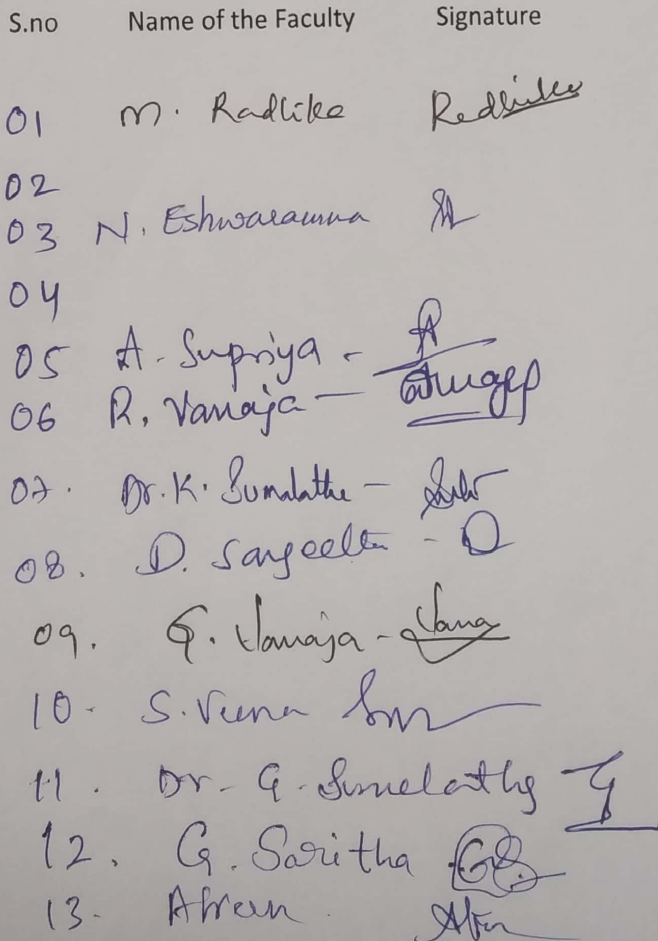 S.no Name of the Faculty Signature
01 M. Radhika Radhika
02
03 N. Eshwaramma
04
05 A. Supriya -
06 R. Vanaja -
07. Dr. K. Sumalatha -
08. D. Sangeetha -
09. G. Vanaja - Vana
10. S. Veena
11. Dr. G. Sumelatha
12. G. Saritha GS
13. Afreen